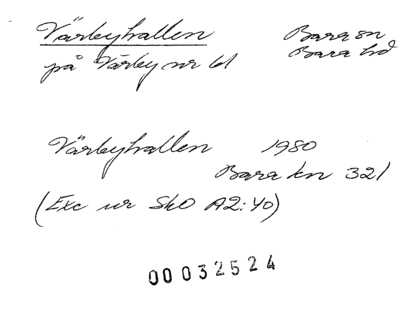 Värbyhallen Bara sn
på Värby nr 61 Bara hd
Värbyhallen 1980
Bara kn 321
(Exc ur SkO A2:40)
00032524